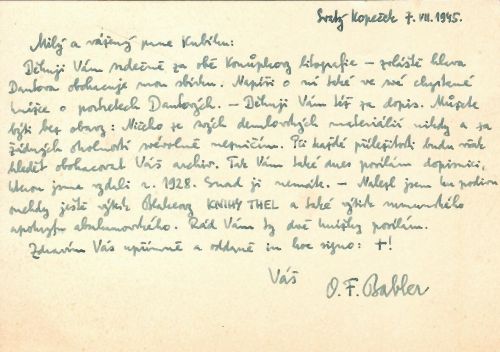 Svatý Kopeček 7. VII. 1945.
Milý a vážený pane Kubíku:
Děkuji Vám srdečně za obě Konůpkovy litografie — zvláště hlava
Dantova obohacuje mou sbírku. Napíši o ní také ve své chystané
knížce o portretech Dantových. — Děkuji Vám též za dopis. Můžete
býti bez obavy: Ničeho ze svých demlovských materiálií nikdy a za
žádných okolností névolně nezničím. Při každé příležitosti budu však
hledět obohacovat Váš archiv. Tak Vám také dnes posílám dopisnici,
kterou jsme vydali r. 1928. Snad ji nemáte. — Nalezl jsem ku podivu
někdy ještě výtisk Blakeovy KNIHY THEL a také výtisk rumunského
apokryfu abrahamovského. Rád Vám ty dvě knížky posílám.
Zdravím Vás upřímně a oddaně in hoc signo: +!
Váš
O. F. Babler